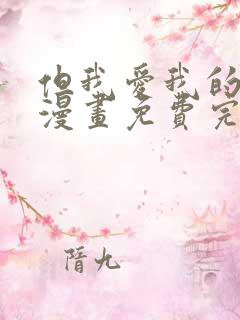 但我愛我的
漫畫免費完
隋九